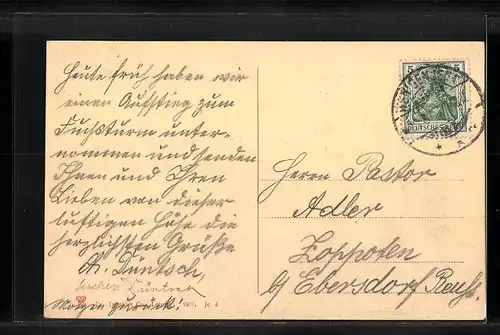 Heute früh haben wir
einen Aufstieg zum
Fuchsturm unter-
nommen und senden
Ihnen und Ihren
Lieben von dieser
luftigen Höhe die
herzlichsten Grüße
A. Düntsch,
Morgen zurück!
5
DEUTSCHES
Herrn Pastor
Adler
Zoppoten
b/ Ebersdorf Reuß.